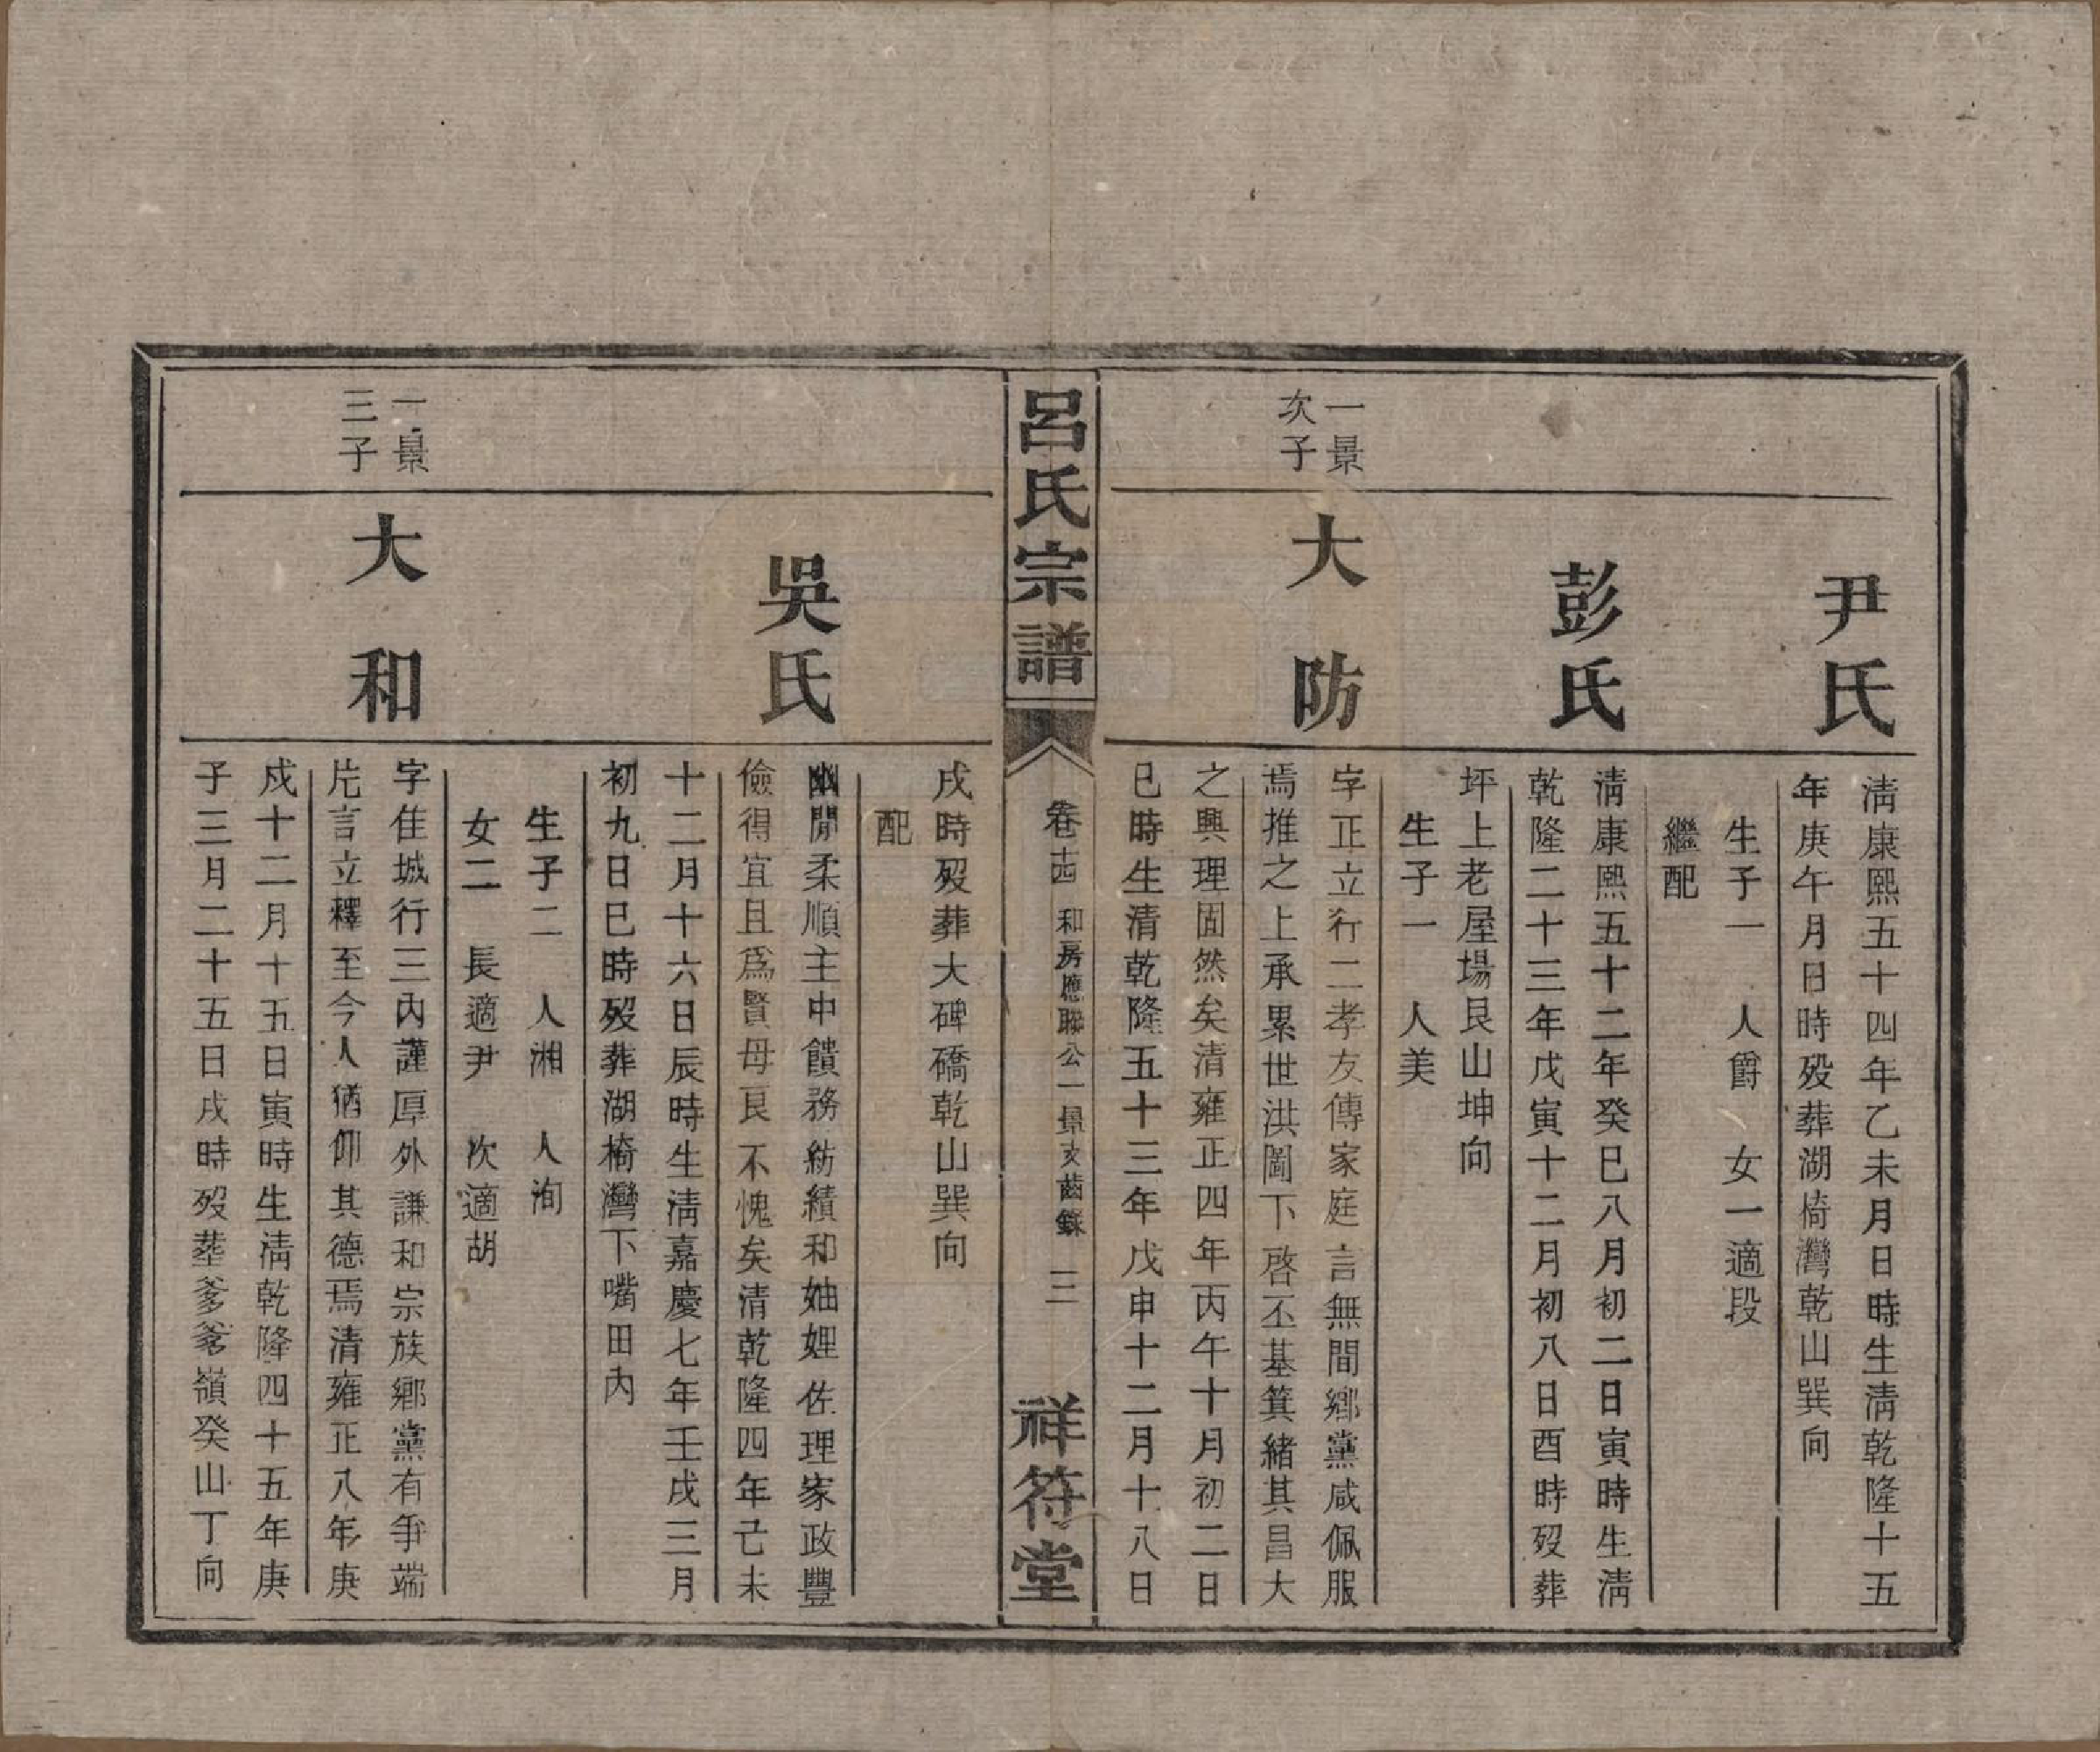 尹氏
清康熙五十四年乙未月日時生清乾隆十五
年庚午月日時歿葬湖椅灣乾山巽向
生子一　人爵　女一適段
繼配
彭氏
清康熙五十二年癸巳八月初二日寅時生清
乾隆二十三年戊寅十二月初八日酉時歿葬
坪上老屋場艮山坤向
生子一　人美
一景
次子
大防
字正立行二孝友傳家庭言無間鄉黨咸佩服
焉推之上承累世洪圖下啓丕基箕緒其昌大
之興理固然矣清雍正四年丙午十月初二日
巳時生清乾隆五十三年戊申十二月十八日
呂氏宗譜
卷十四　和房應聯公一景支齒錄　二
祥符堂
戌時歿葬大碑礄乾山巽向
配
吳氏
幽閒柔順主中饋務紡績和妯娌佐理家政豐
儉得宜且爲賢母良不愧矣清乾隆四年己未
十二月十六日辰時生清嘉慶七年壬戌三月
初九日巳時歿葬湖椅灣下嘴田內
生子二　人湘　人洵
女二　長適尹　次適胡
一景
三子
大和
字佳城行三內謹厚外謙和宗族鄉黨有爭端
片言立釋至今人猶仰其德焉清雍正八年庚
戌十二月十五日寅時生清乾隆四十五年庚
子三月二十五日戌時歿塟爹爹嶺癸山丁向